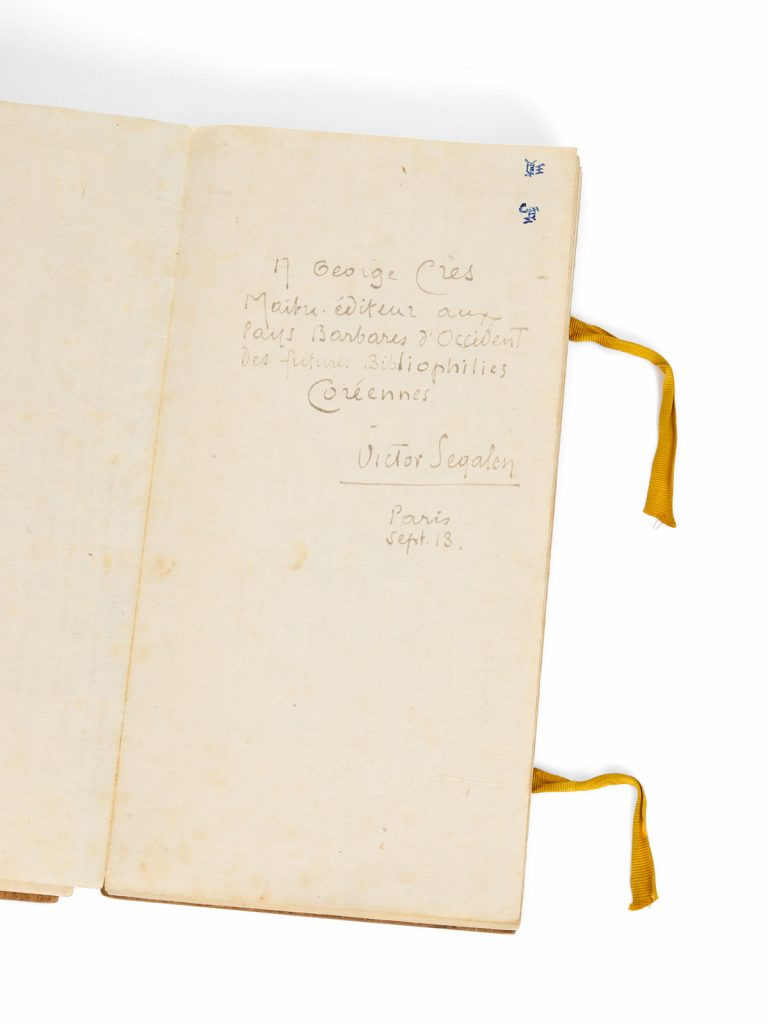 A George Crès
Maître-éditeur aux
Pays Barbares d'Occident
des futures Bibliophilies
Coréennes
Victor Segalen
Paris
Sept. 13.